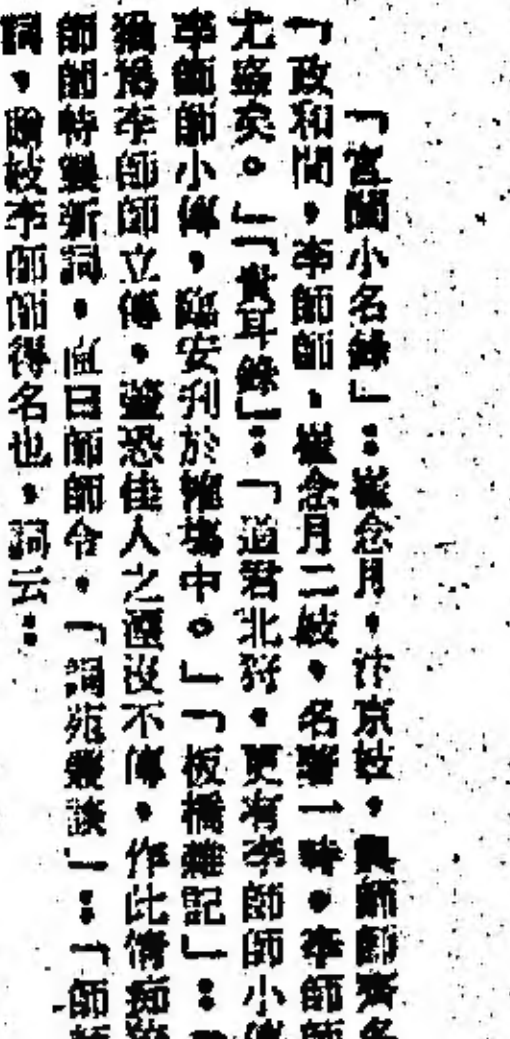 「宮闈小名錄」：崔念月，汴京妓，與師師齊名
「政和間，李師師、崔念月二妓，名著一時。李師師
尤盛矣。」「貴耳錄」：「道君北狩，更有李師師小傳
李師師小傳，臨安刊於榷場中。」「板橋雜記」：「
猶為李師師立傳，蓋恐佳人之湮沒不傳，作此情痴
師師特製新詞，直曰師師令。「詞苑叢談」：「師師
詞，贈妓李師師得名也，詞云：